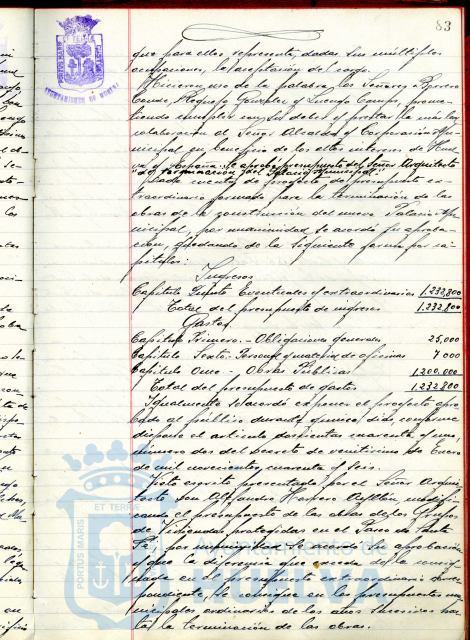 83
que para ellos representa, dadas sus múltiples
ocupaciones, la aceptación del cargo.
Hicieron uso de la palabra los Señores Borrero
Conde, Mojarro González y Quengo Campos, prome-
tiendo cumplir con su deber y prestar la máxima
colaboración al Señor Alcalde y Corporación Mu-
nicipal en beneficio de los altos intereses de Huel-
va y España. Se aprueba presupuesto del Señor Arquitecto
"de terminación del Palacio Municipal"
Dada cuenta de proyecto de presupuesto ex-
traordinario formado para la terminación de las
obras de la construcción del nuevo Palacio Mu-
nicipal, por unanimidad se acordó su aproba-
ción, quedando de la siguiente forma por ca-
pítulos:
Ingresos
Capítulo Sexto Eventuales y extraordinarios 1.232,800
Total del presupuesto de ingresos 1.232,800
Gastos
Capítulo Primero.- Obligaciones generales 25,000
Capítulo Sexto: Personal y material de oficinas 7 000
Capítulo Once - Obras Públicas 1,200,000
Total del presupuesto de gastos 1.232800
Igualmente se acordó exponer el proyecto apro-
bado al público durante quince días, conforme
dispone el artículo doscientos cuarenta y uno,
número dos del Decreto de veinticinco de Enero
de mil novecientos cuarenta y seis.
Visto escrito presentado por el Señor Arqui-
tecto Don Alejandro Herrero Ayllón modifi-
cando el presupuesto de las obras de los Grupos
de Viviendas protegidas en el Paseo de Santa
Fé, por unanimidad se acordó su aprobación
y que la diferencia que exceda de la consig-
nada en el presupuesto extraordinario corres-
pondiente, se consigne en los presupuestos mu-
nicipales ordinarios de los años sucesivos has-
ta la terminación de las obras.
PORTUS MARIS
ET TERRAE
Ayuntamiento de
HUELVA